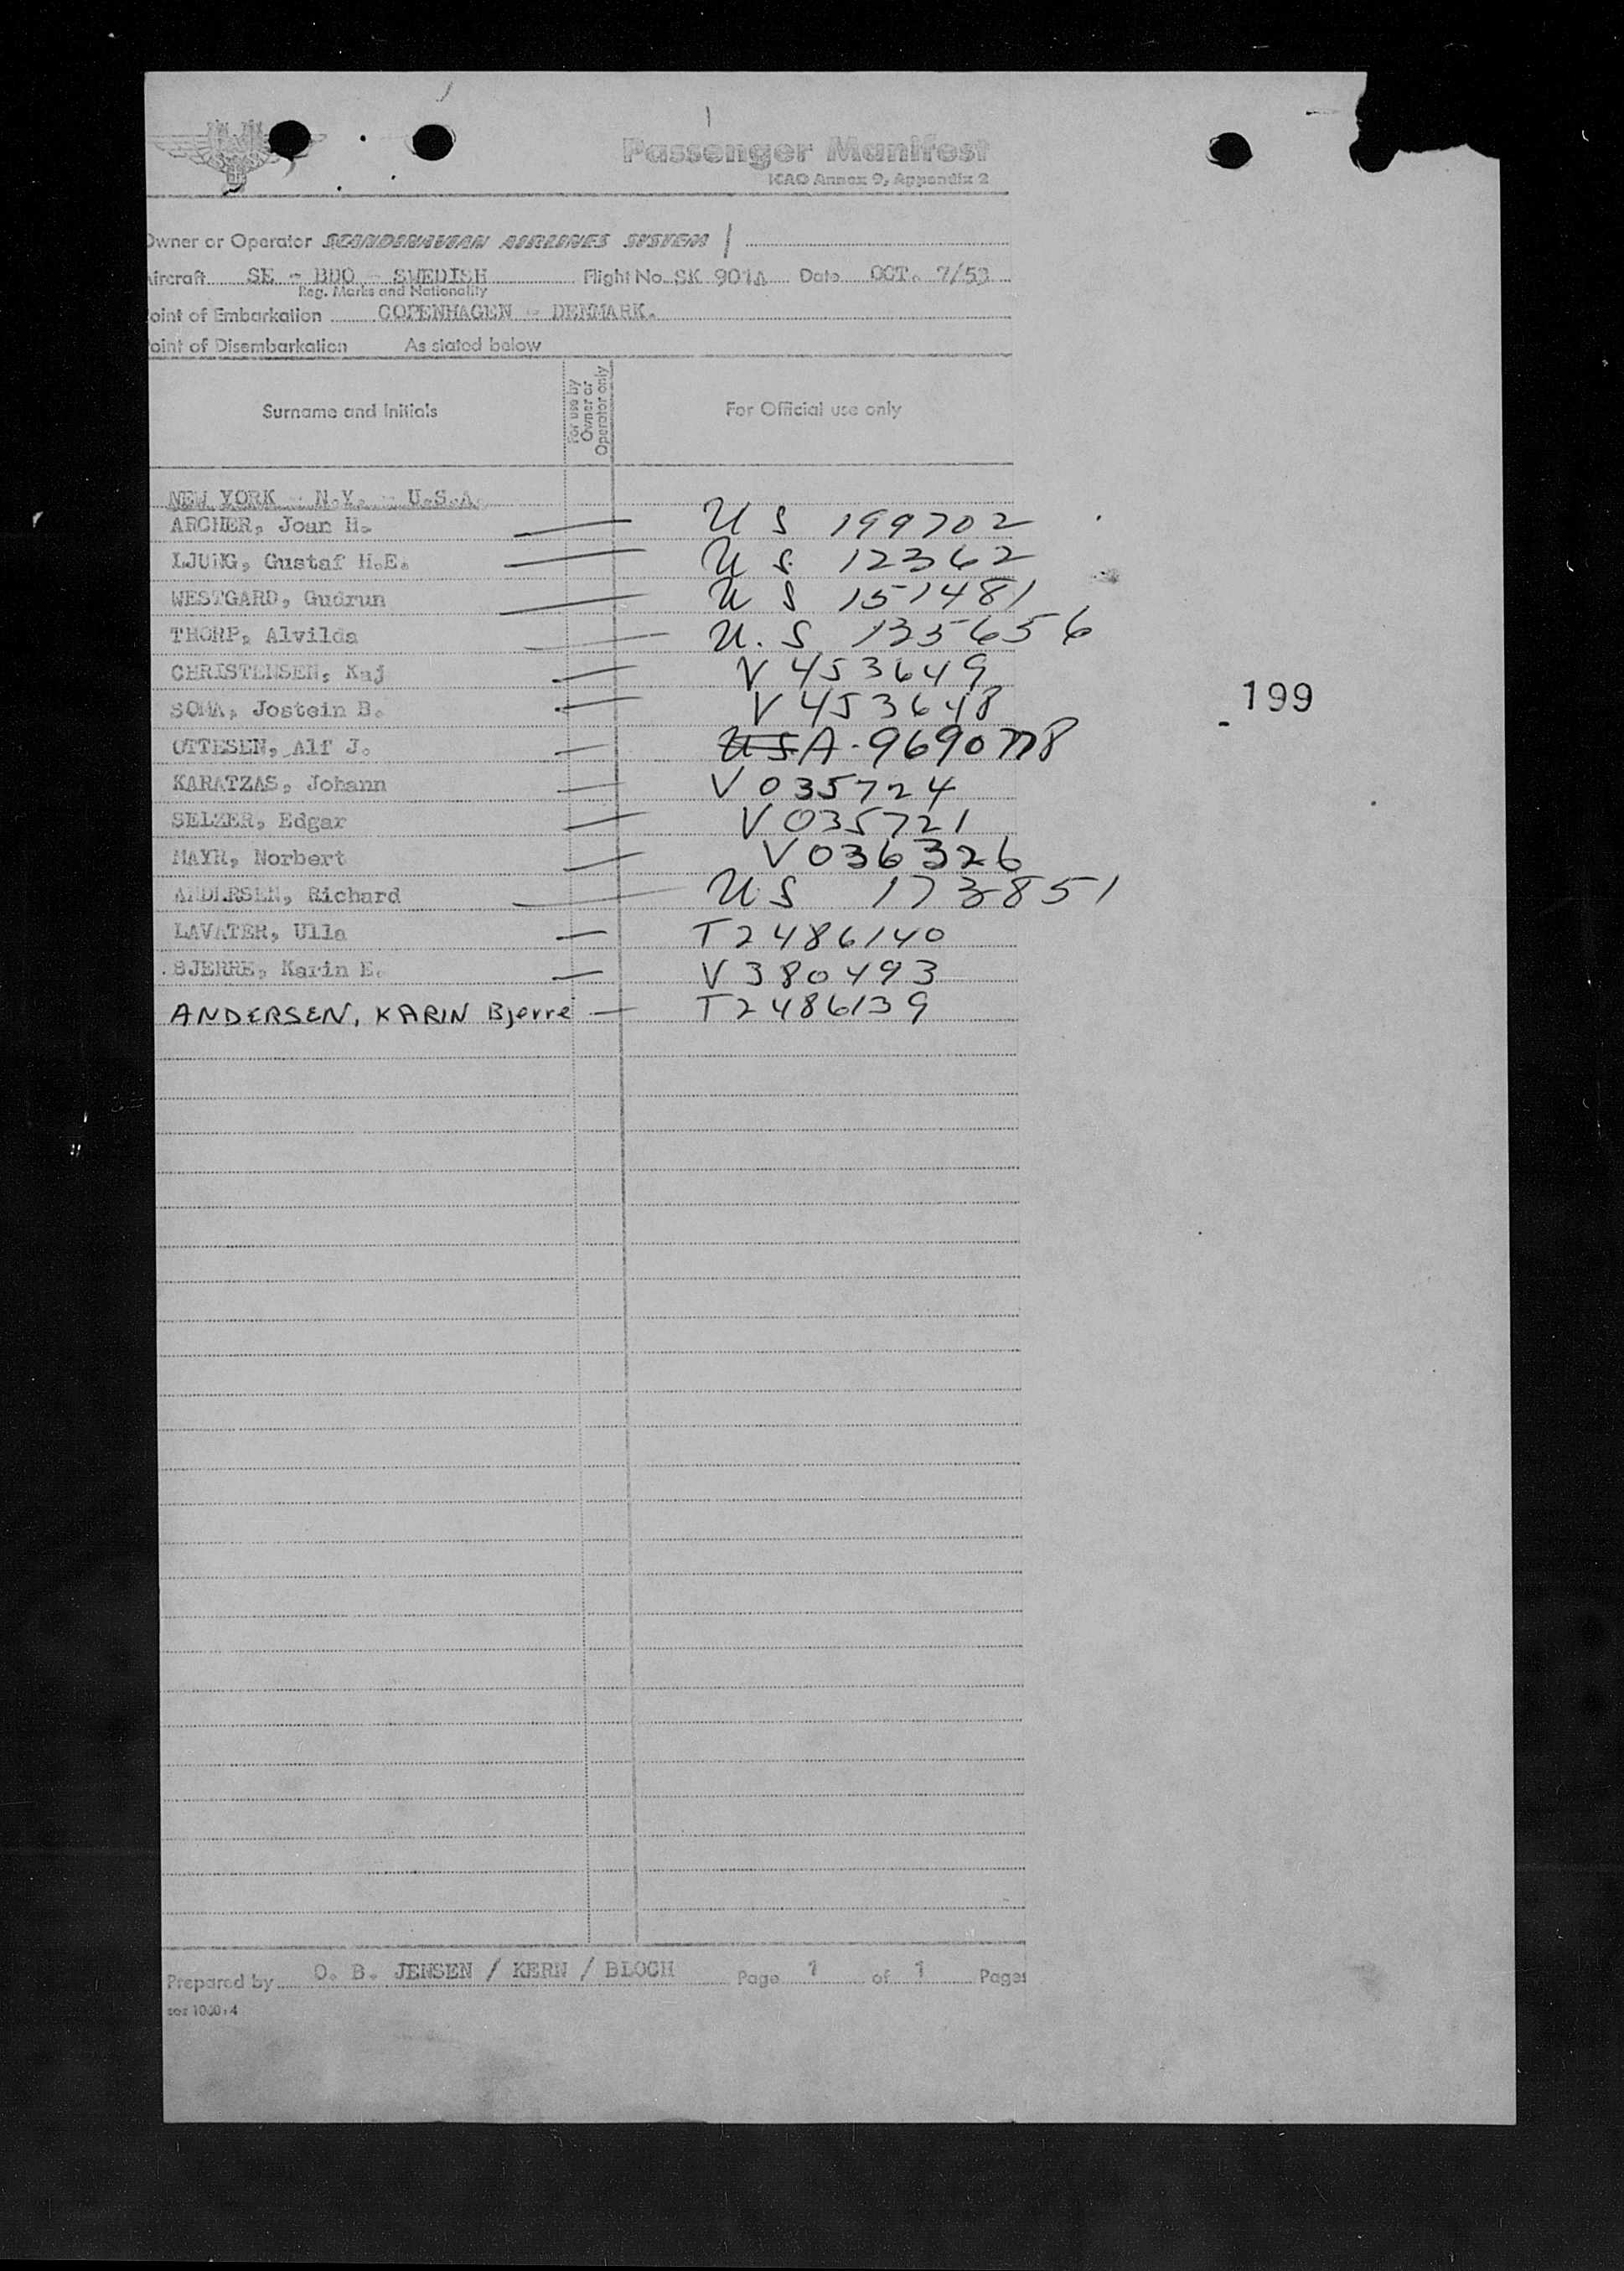 Passenger Manifest
ICAO Annex 9, Appendix 2
Owner or Operator SCANDINAVIAN AIRLINES SYSTEM
Aircraft SE - BDO - SWEDISH Flight No. SK 901A Date OCT. 7/53
Reg. Marks and Nationality
oint of Embarkation COPENHAGEN - DENMARK.
oint of Disembarkation As stated below
Surname and Initials For use by Owner or Operator only For Official use only
NEW YORK - N.Y. - U.S.A.
ARCHER, Joan H. US 199702
LJUNG, Gustaf H.E. US 12362
WESTGARD, Gudrun US 151481
THORP, Alvilda U.S 135656
CHRISTENSEN, Kaj V 453649
SOMA, Jostein B. V 453648
199
OTTESEN, Alf J. USA-9690778
KARATZAS, Johann V 035724
SELZER, Edgar V 035721
MAYR, Norbert V 036326
ANDERSEN, Richard US 173851
LAVATER, Ulla T2486140
BJERRE, Karin E. V 380493
ANDERSEN, KARIN Bjerre T2486139
Prepared by O. B. JENSEN / KERN / BLOCH Page 1 of 1 Pages